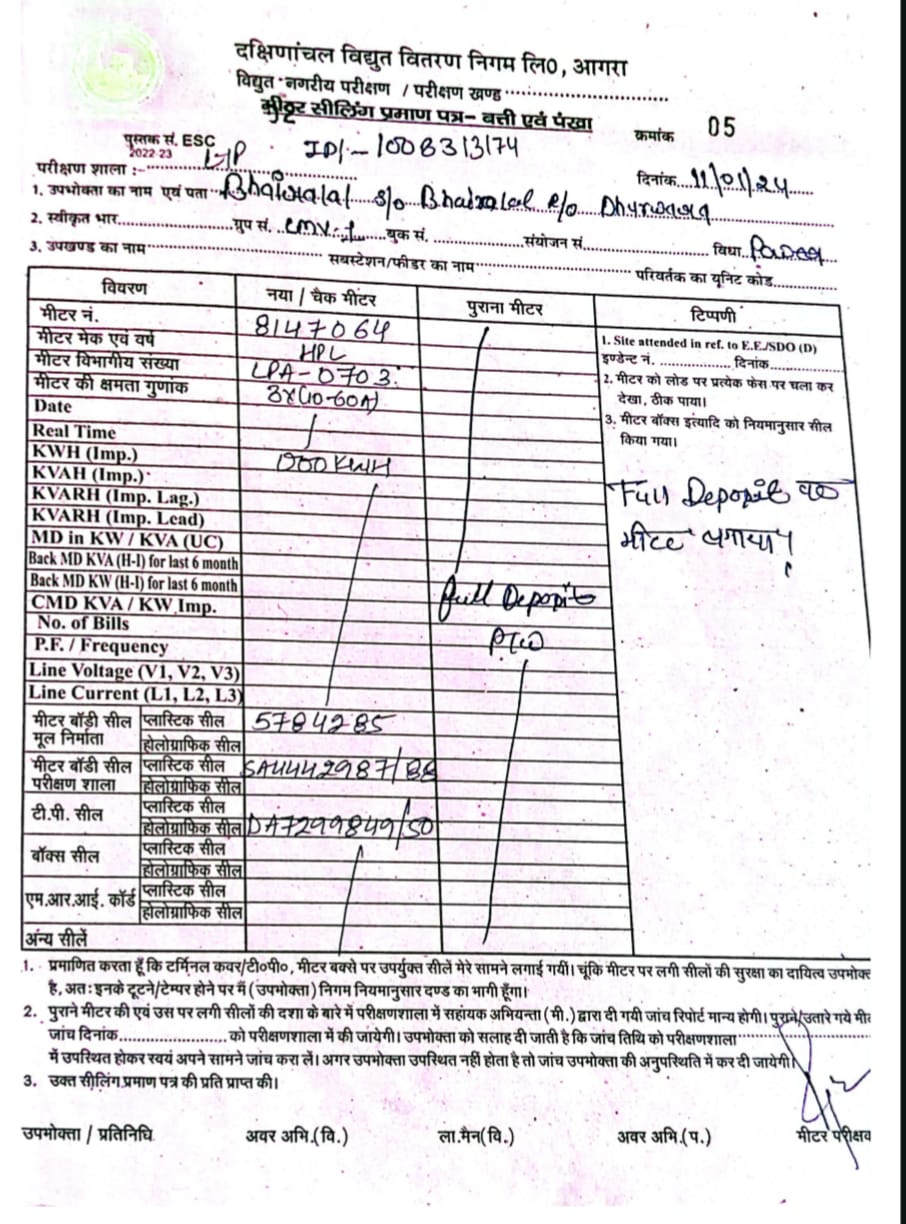 दक्षिणांचल विद्युत वितरण निगम लि0, आगरा
विद्युत नगरीय परीक्षण / परीक्षण खण्ड
मीटर सीलिंग प्रमाण पत्र- बत्ती एवं पंखा
क्रमांक 05
पुस्तक सं. ESC
2022-23
ID:-1008313174
परीक्षण शाला :-
दिनांक 11/01/24
1. उपभोक्ता का नाम एवं पता s/o R/o
2. स्वीकृत भार ग्रुप सं. बुक सं. संयोजन सं. विधा Power
3. उपखण्ड का नाम सबस्टेशन/फीडर का नाम परिवर्तक का यूनिट कोड
विवरण नया / चैक मीटर पुराना मीटर टिप्पणी
मीटर नं. 8147064
मीटर मेक एवं वर्ष HPL
मीटर विभागीय संख्या LPA-0703
मीटर की क्षमता गुणांक 3x(10-60A)
Date
Real Time
KWH (Imp.) 000 KWH
KVAH (Imp.)
KVARH (Imp. Lag.)
KVARH (Imp. Lead)
MD in KW / KVA (UC)
Back MD KVA (H-I) for last 6 month
Back MD KW (H-I) for last 6 month Full Deposit
CMD KVA / KW Imp.
No. of Bills
P.F. / Frequency
Line Voltage (V1, V2, V3)
Line Current (L1, L2, L3)
1. Site attended in ref. to E.E./SDO (D)
इण्डेन्ट नं. दिनांक
2. मीटर को लोड पर प्रत्येक फेस पर चला कर
देखा, ठीक पाया।
3. मीटर बॉक्स इत्यादि को नियमानुसार सील
किया गया।
Full Deposit पर
मीटर लगाया।
मीटर बॉडी सील प्लास्टिक सील 5784285
मूल निर्माता होलोग्राफिक सील
मीटर बॉडी सील प्लास्टिक सील SA4442987/88
परीक्षण शाला होलोग्राफिक सील
टी.पी. सील प्लास्टिक सील
होलोग्राफिक सील DA7299849/50
बॉक्स सील प्लास्टिक सील
होलोग्राफिक सील
एम.आर.आई. कॉर्ड प्लास्टिक सील
होलोग्राफिक सील
अन्य सीलें
1. प्रमाणित करता हूँ कि टर्मिनल कवर/टी०पी०, मीटर बक्से पर उपर्युक्त सीलें मेरे सामने लगाई गयीं। चूंकि मीटर पर लगी सीलों की सुरक्षा का दायित्व उपभोक्
है, अतः इनके टूटने/टेम्पर होने पर मैं (उपभोक्ता) निगम नियमानुसार दण्ड का भागी हूँगा।
2. पुराने मीटर की एवं उस पर लगी सीलों की दशा के बारे में परीक्षणशाला में सहायक अभियन्ता (मी.) द्वारा दी गयी जांच रिपोर्ट मान्य होगी। पुराने/उतारे गये मीट
जांच दिनांक को परीक्षणशाला में की जायेगी। उपभोक्ता को सलाह दी जाती है कि जांच तिथि को परीक्षणशाला
में उपस्थित होकर स्वयं अपने सामने जांच करा लें। अगर उपभोक्ता उपस्थित नहीं होता है तो जांच उपभोक्ता की अनुपस्थिति में कर दी जायेगी।
3. उक्त सीलिंग प्रमाण पत्र की प्रति प्राप्त की।
उपभोक्ता / प्रतिनिधि अवर अभि.(वि.) ला.मैन(वि.) अवर अभि.(प.) मीटर परीक्षक